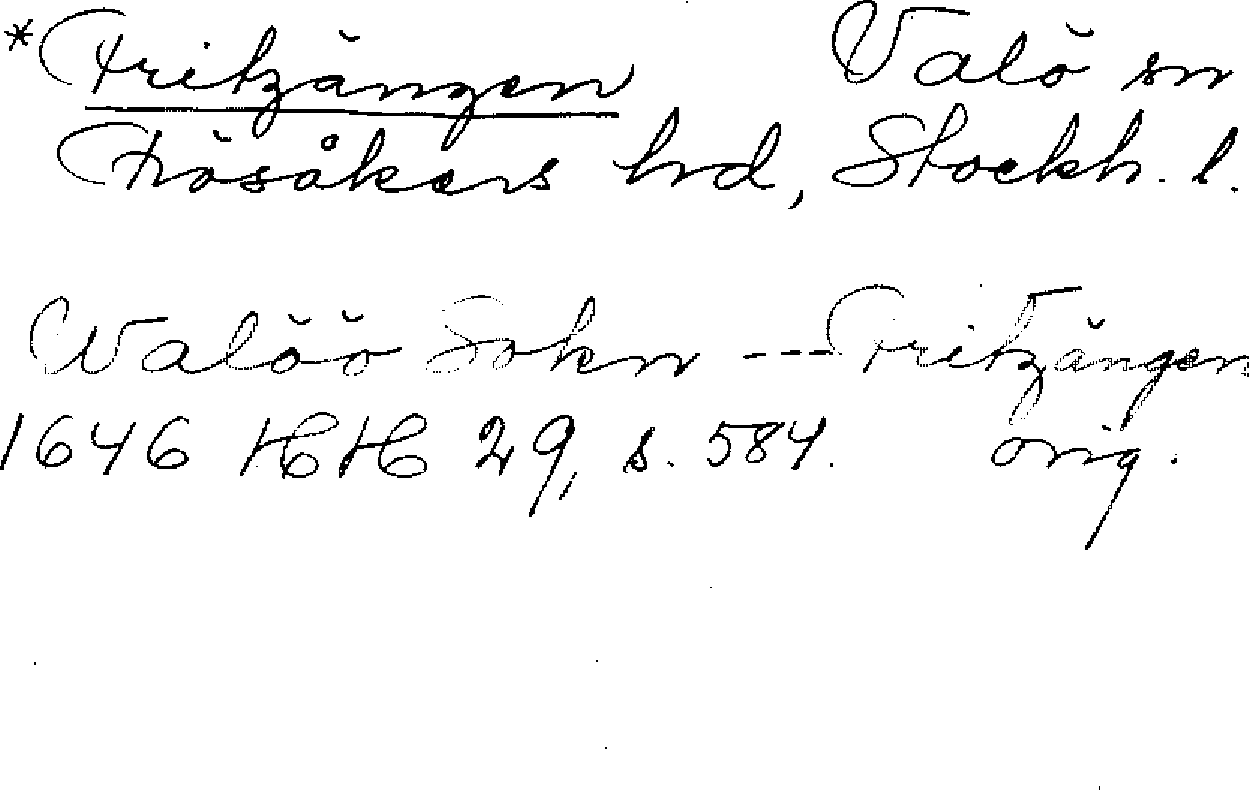 *Fritzängen Valö sn
Frösåkers hrd, Stockh. l.
Walöö Sokn --- Fritzängen
1646 HH 29, s. 584. orig.